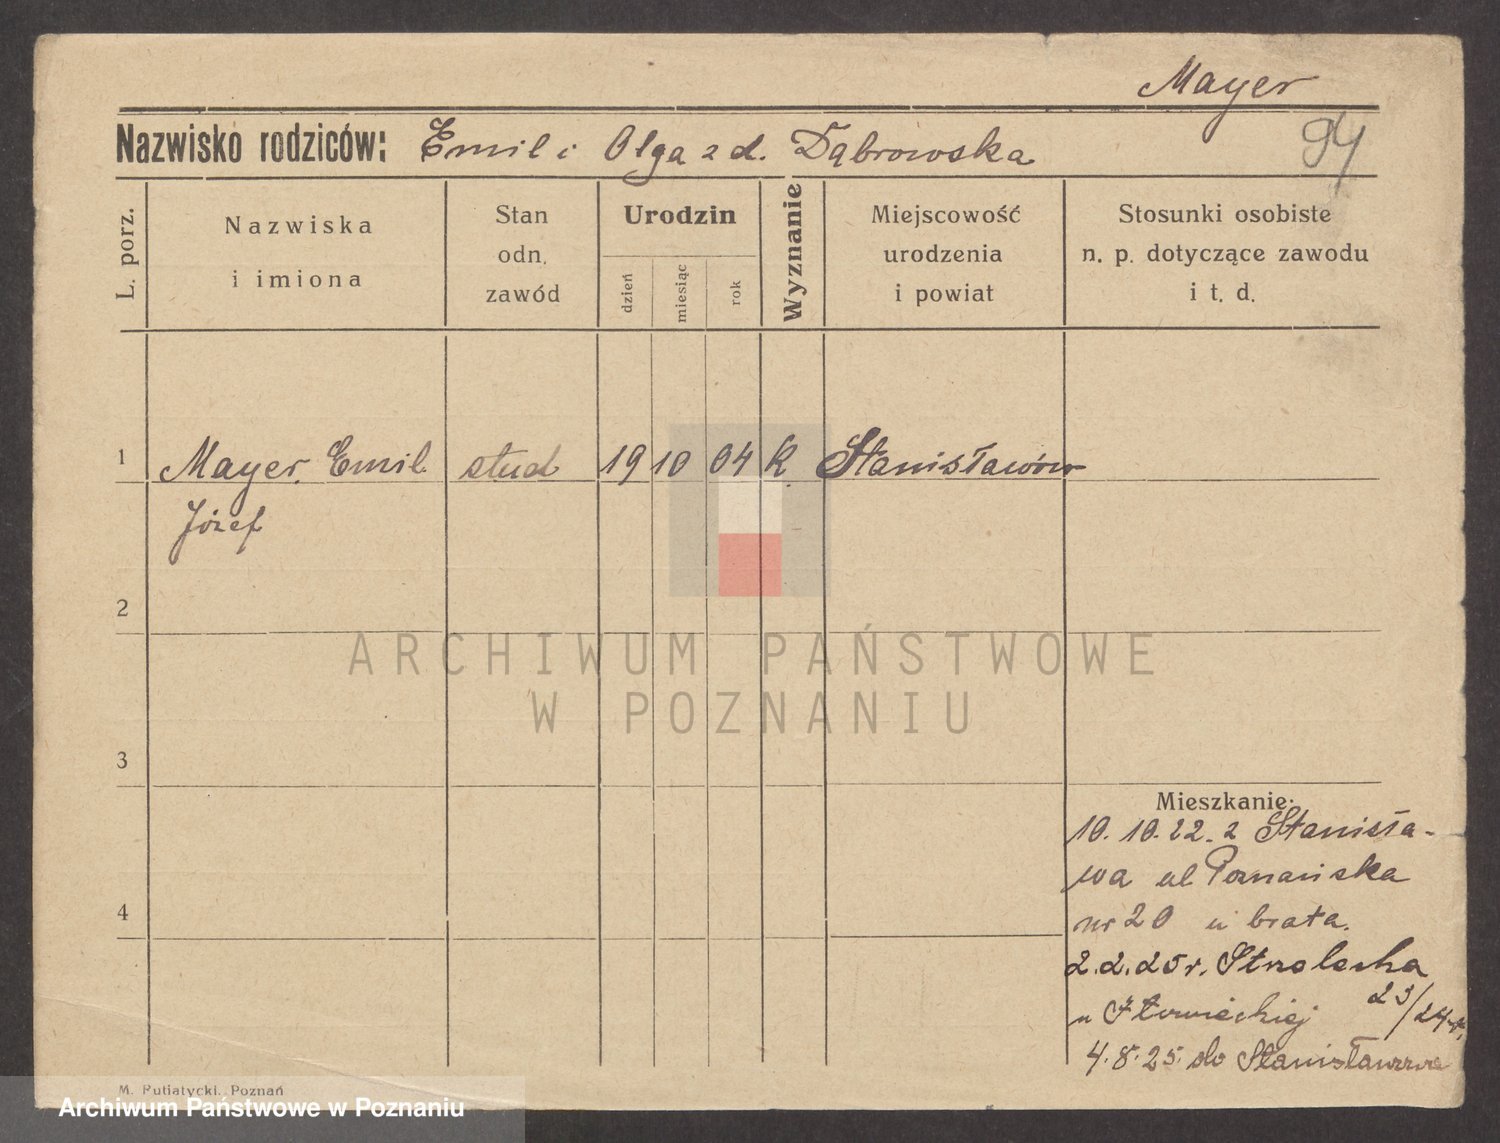 Mayer
94
Nazwisko rodziców: Emil i Olga z d. Dąbrowska
L. porz.
Nazwiska
i imiona
Stan
odn.
zawód
Urodzin
dzień
miesiąc
rok
Wyznanie
Miejscowość
urodzenia
i powiat
Stosunki osobiste
n. p. dotyczące zawodu
i t. d.
1 Mayer Emil stud 19 10 04 k Stanisławów
Józef
2
3
4
Mieszkanie:
10. 10. 22. z Stanisła-
wa ul Poznańska
nr 20 u brata.
2. 2. 25 r. Strzelecka
u 23/24
4. 8. 25. do Stanisławowa
M. Putiatycki, Poznań
ARCHIWUM PAŃSTWOWE
W POZNANIU
Archiwum Państwowe w Poznaniu